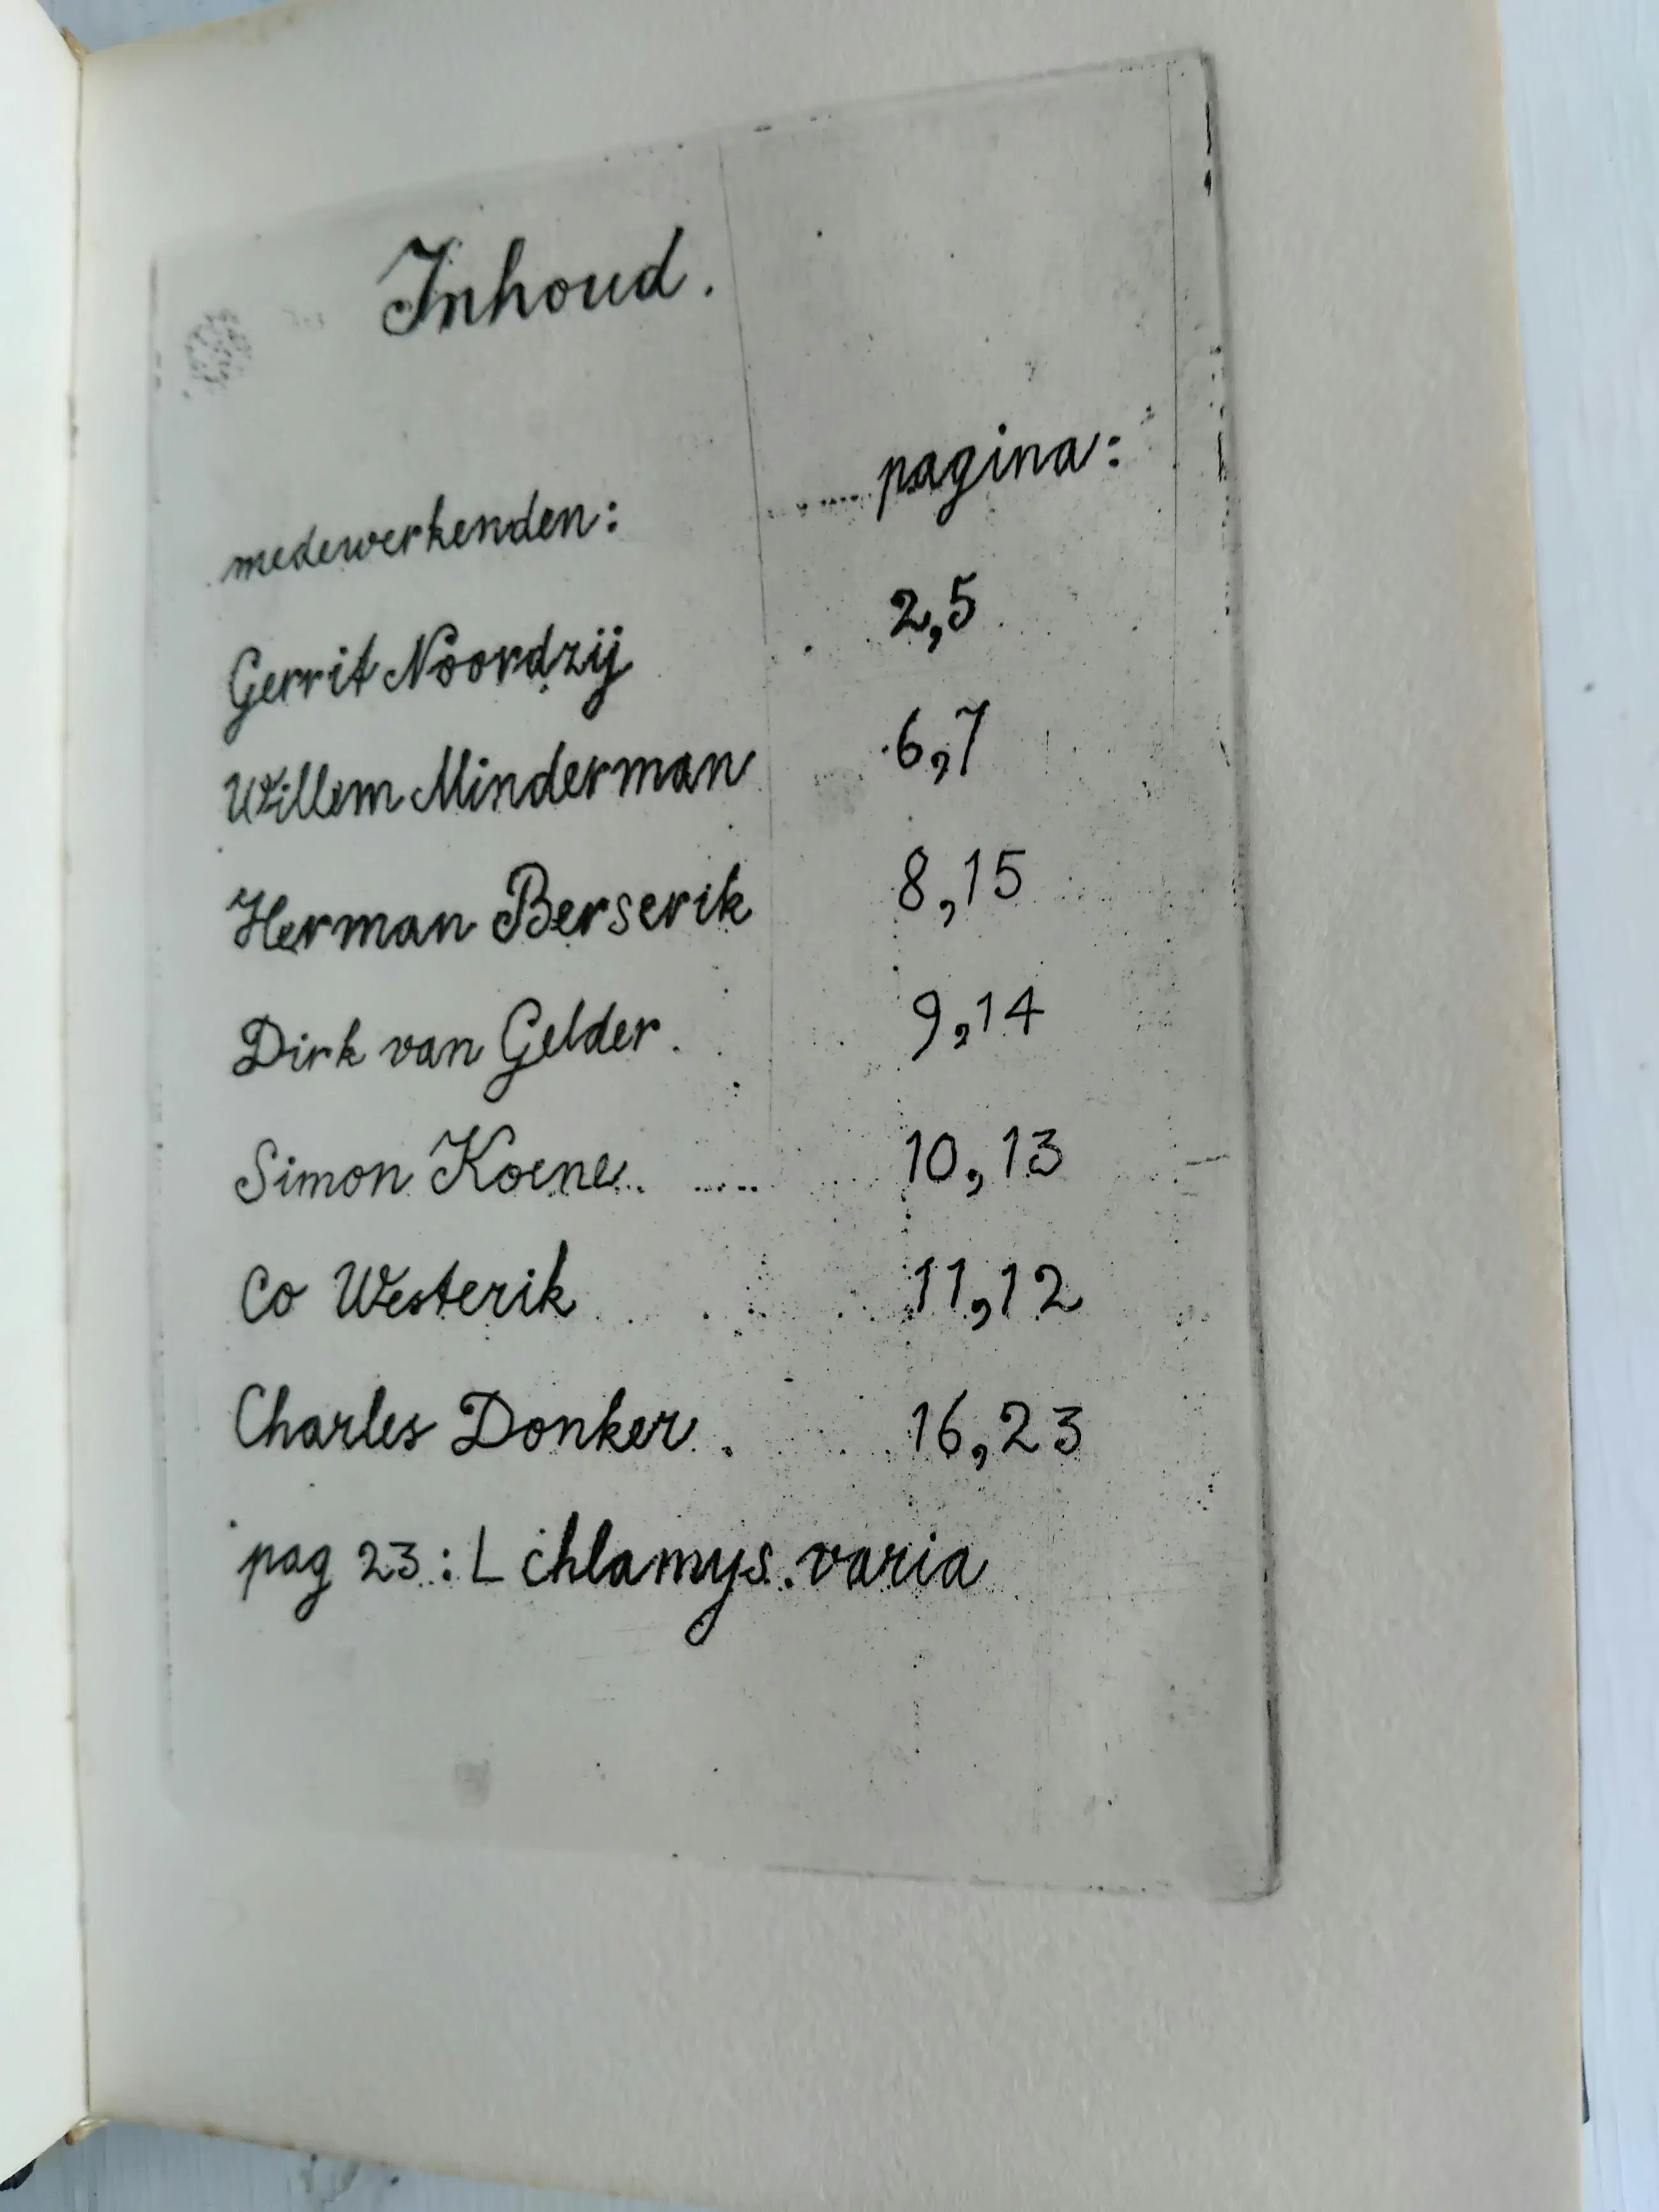 Inhoud.
medewerkenden: pagina:
Gerrit Noordzij 2,5
Willem Minderman 6,7
Herman Berserik 8,15
Dirk van Gelder. 9,14
Simon Koene. 10,13
Co Westerik 11,12
Charles Donker. 16,23
pag 23: L chlamys.varia